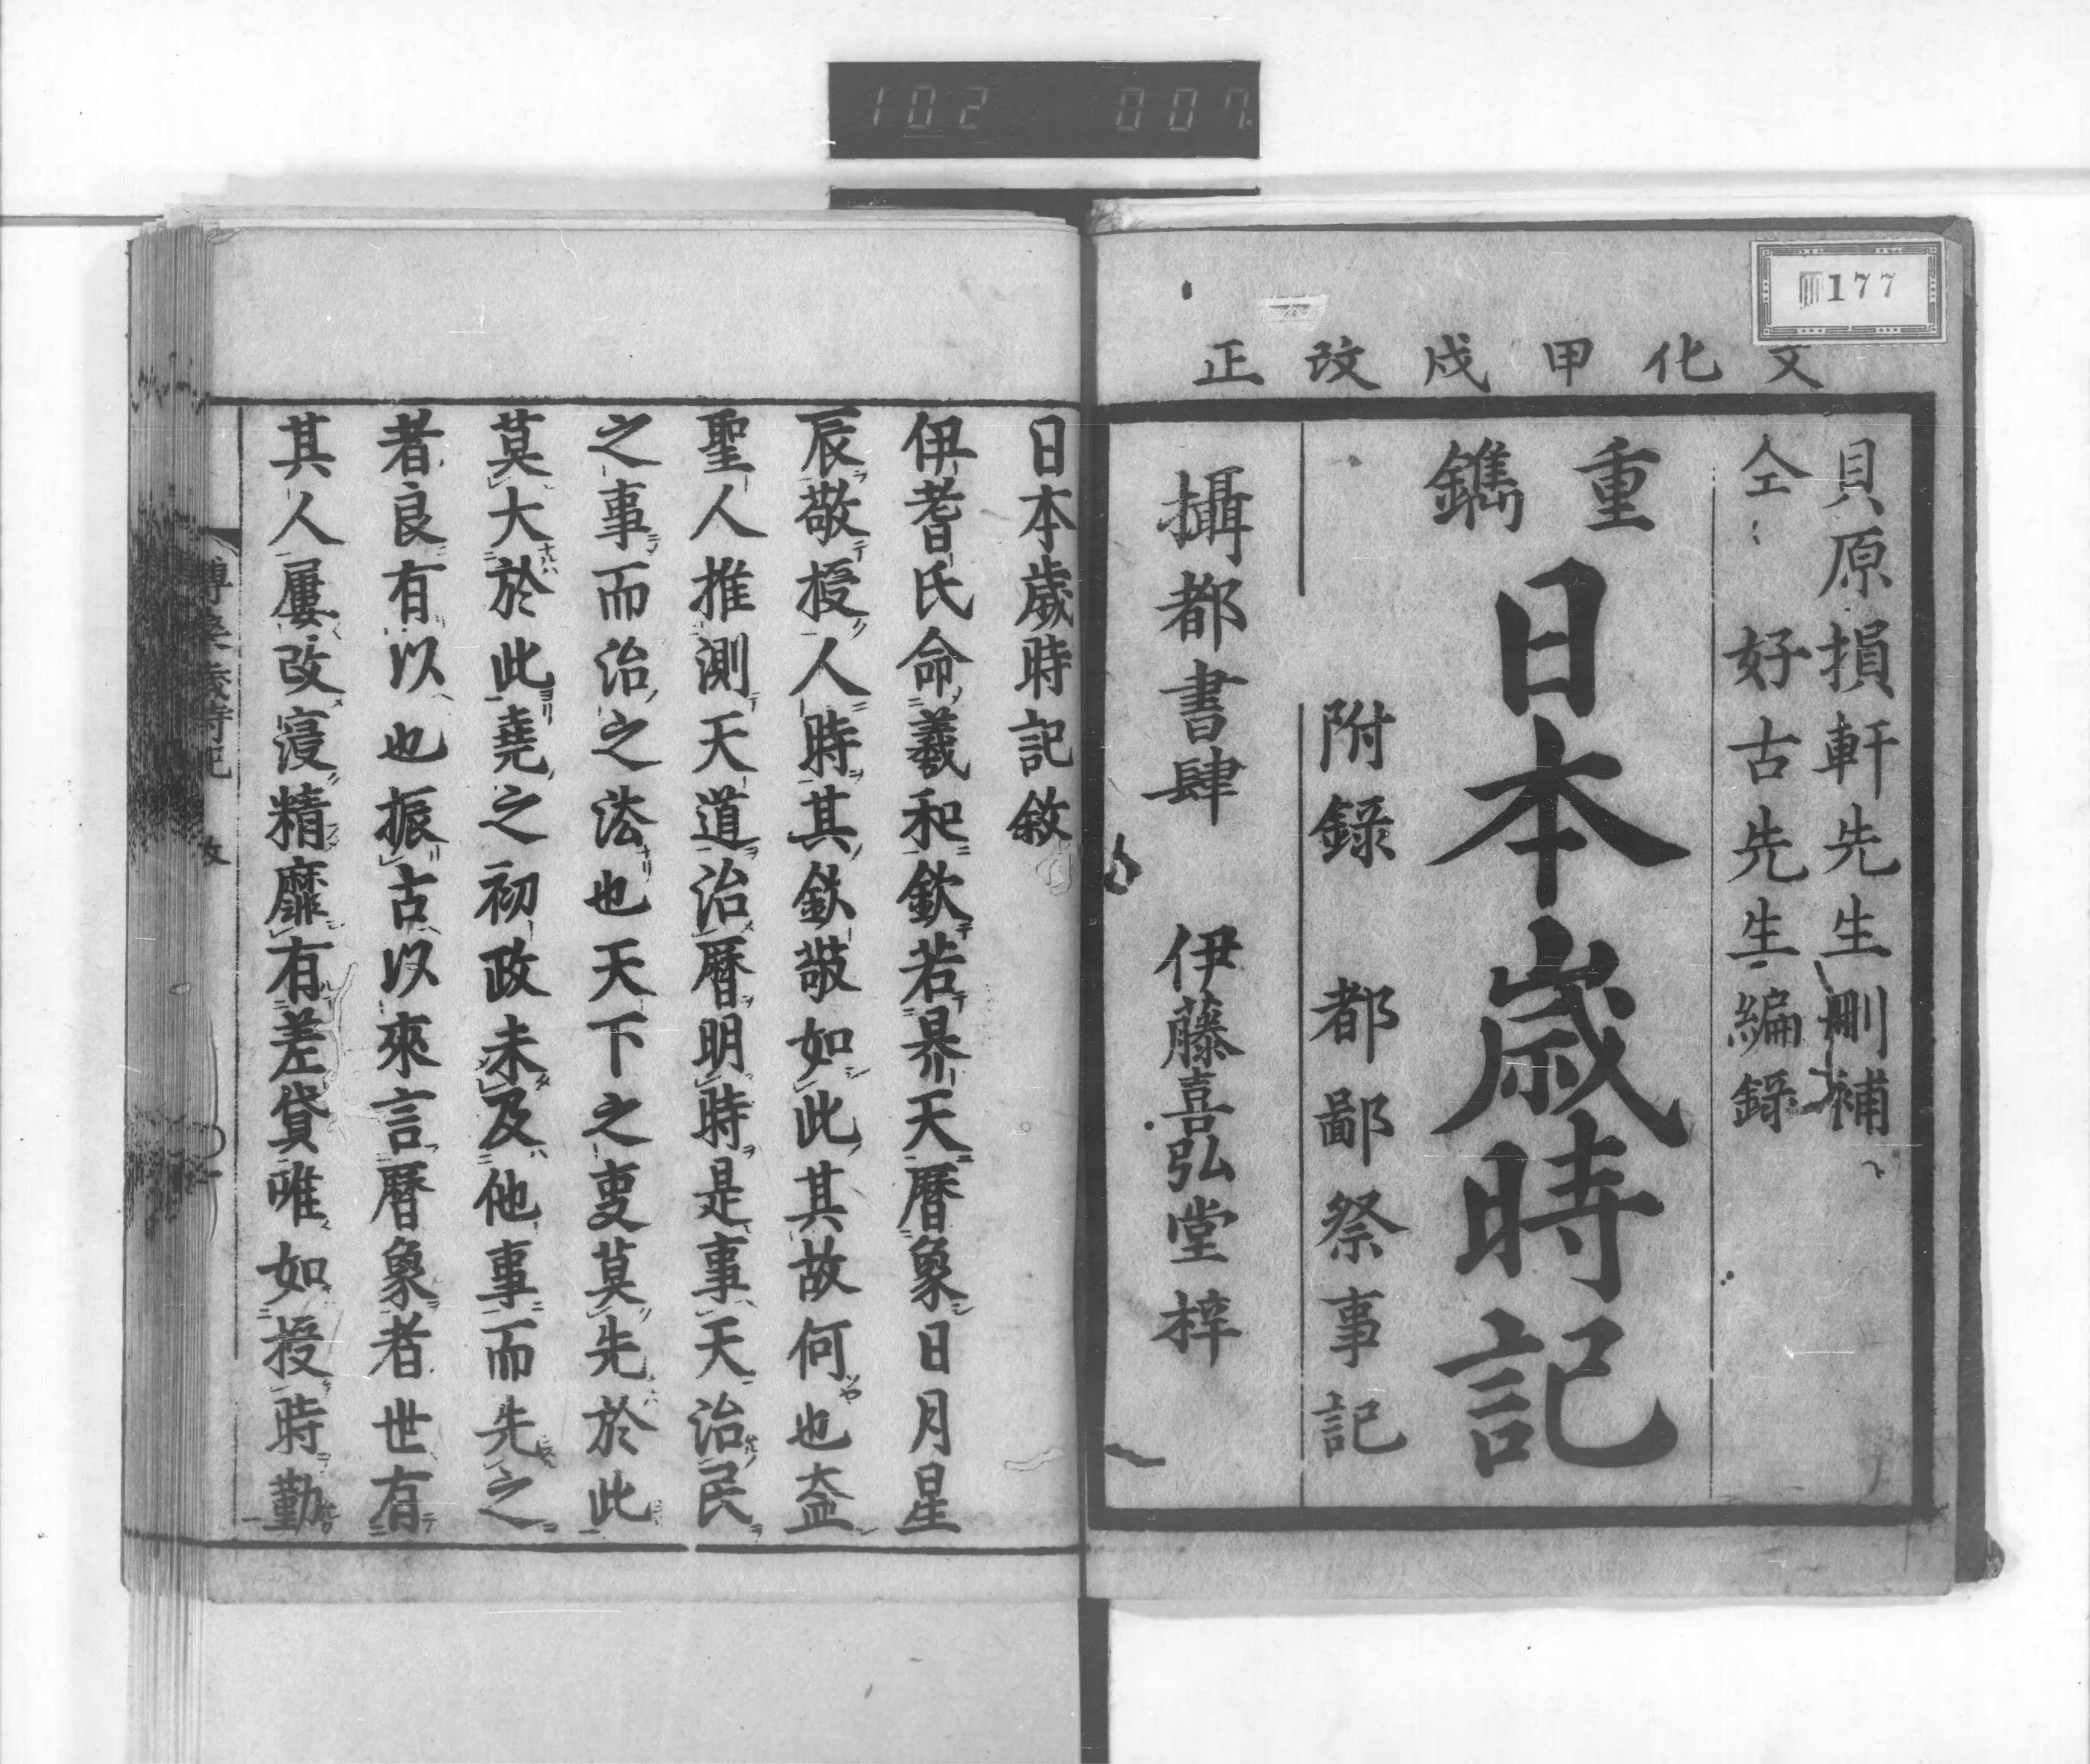 102 007
177
文化甲戌改正
貝原損軒先生刪補
仝 好古先生編錄
重鐫
日本歳時記
附録 都鄙祭事記
攝都書肆 伊藤喜弘堂梓
日本歳時記敘
伊耆氏命羲和欽若昊天曆象日月星
辰敬授人時其欽敬如此其故何也盖
聖人推測天道治曆明時是事天治民
之事而治之法也天下之叓莫先於此
莫大於此堯之初政未及他事而先之
者良有以也振古以來言曆象者世有
其人屢改寖精靡有差貸唯如授時勤
歳時記 敘